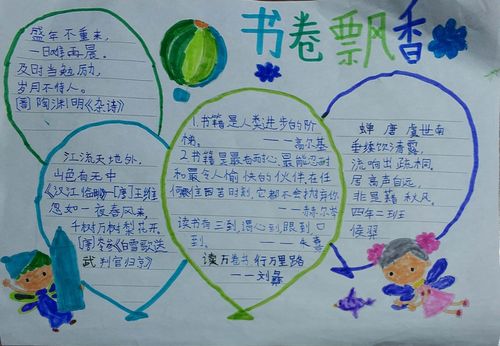 书卷飘香
盛年不重来，
一日难再晨。
及时当勉励，
岁月不待人。
陶渊明《杂诗》
江流天地外，
山色有无中
《汉江临眺》--[唐]王维
忽如一夜春风来，
千树万树梨花开。
[唐]岑参《白雪歌送
武判官归京》
1.书籍是人类进步的阶
梯。——高尔基
2书籍是最有耐心、最能忍耐
和最令人愉快的伙伴,在任
何艰难困苦时刻,它都不会抛弃你
读书有三到,谓心到眼到口
到。——朱熹
读万卷书 行万里路
——刘彝
蝉 唐 虞世南
垂緌饮清露，
流响出疏桐。
居高声自远，
非是藉秋风。
四年二班
侯羿